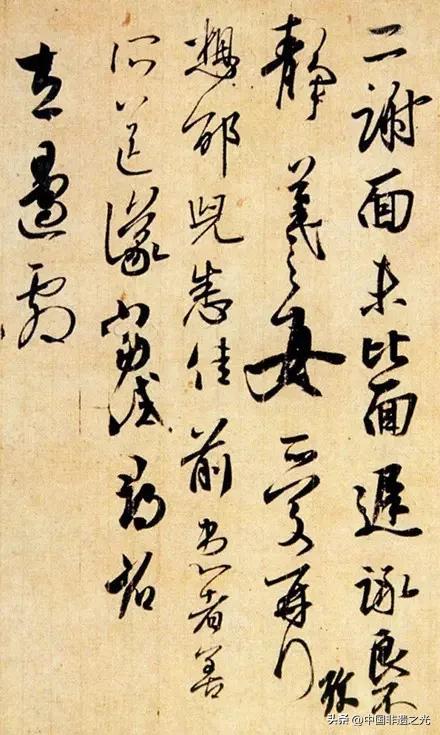 二謝面未比面遲詠良不
靜羲之女愛再拜
想邰兒悉佳前患者善
所送議當試尋省
左邊劇
头条 @中国非遗之光